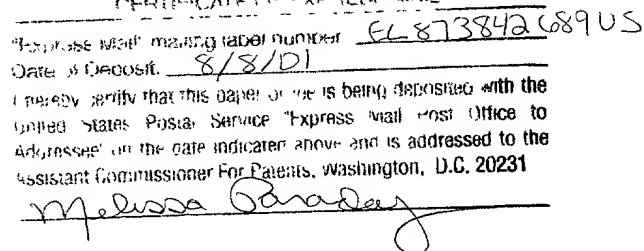 CERTIFICATE OF EXPRESS MAIL
"Express Mail" mailing label number EL873842689US
Date of Deposit. 8/8/01
I hereby certify that this paper or fee is being deposited with the
United States Postal Service "Express Mail Post Office to
Addressee" on the date indicated above and is addressed to the
Assistant Commissioner For Patents, Washington, D.C. 20231
Melissa Paraday